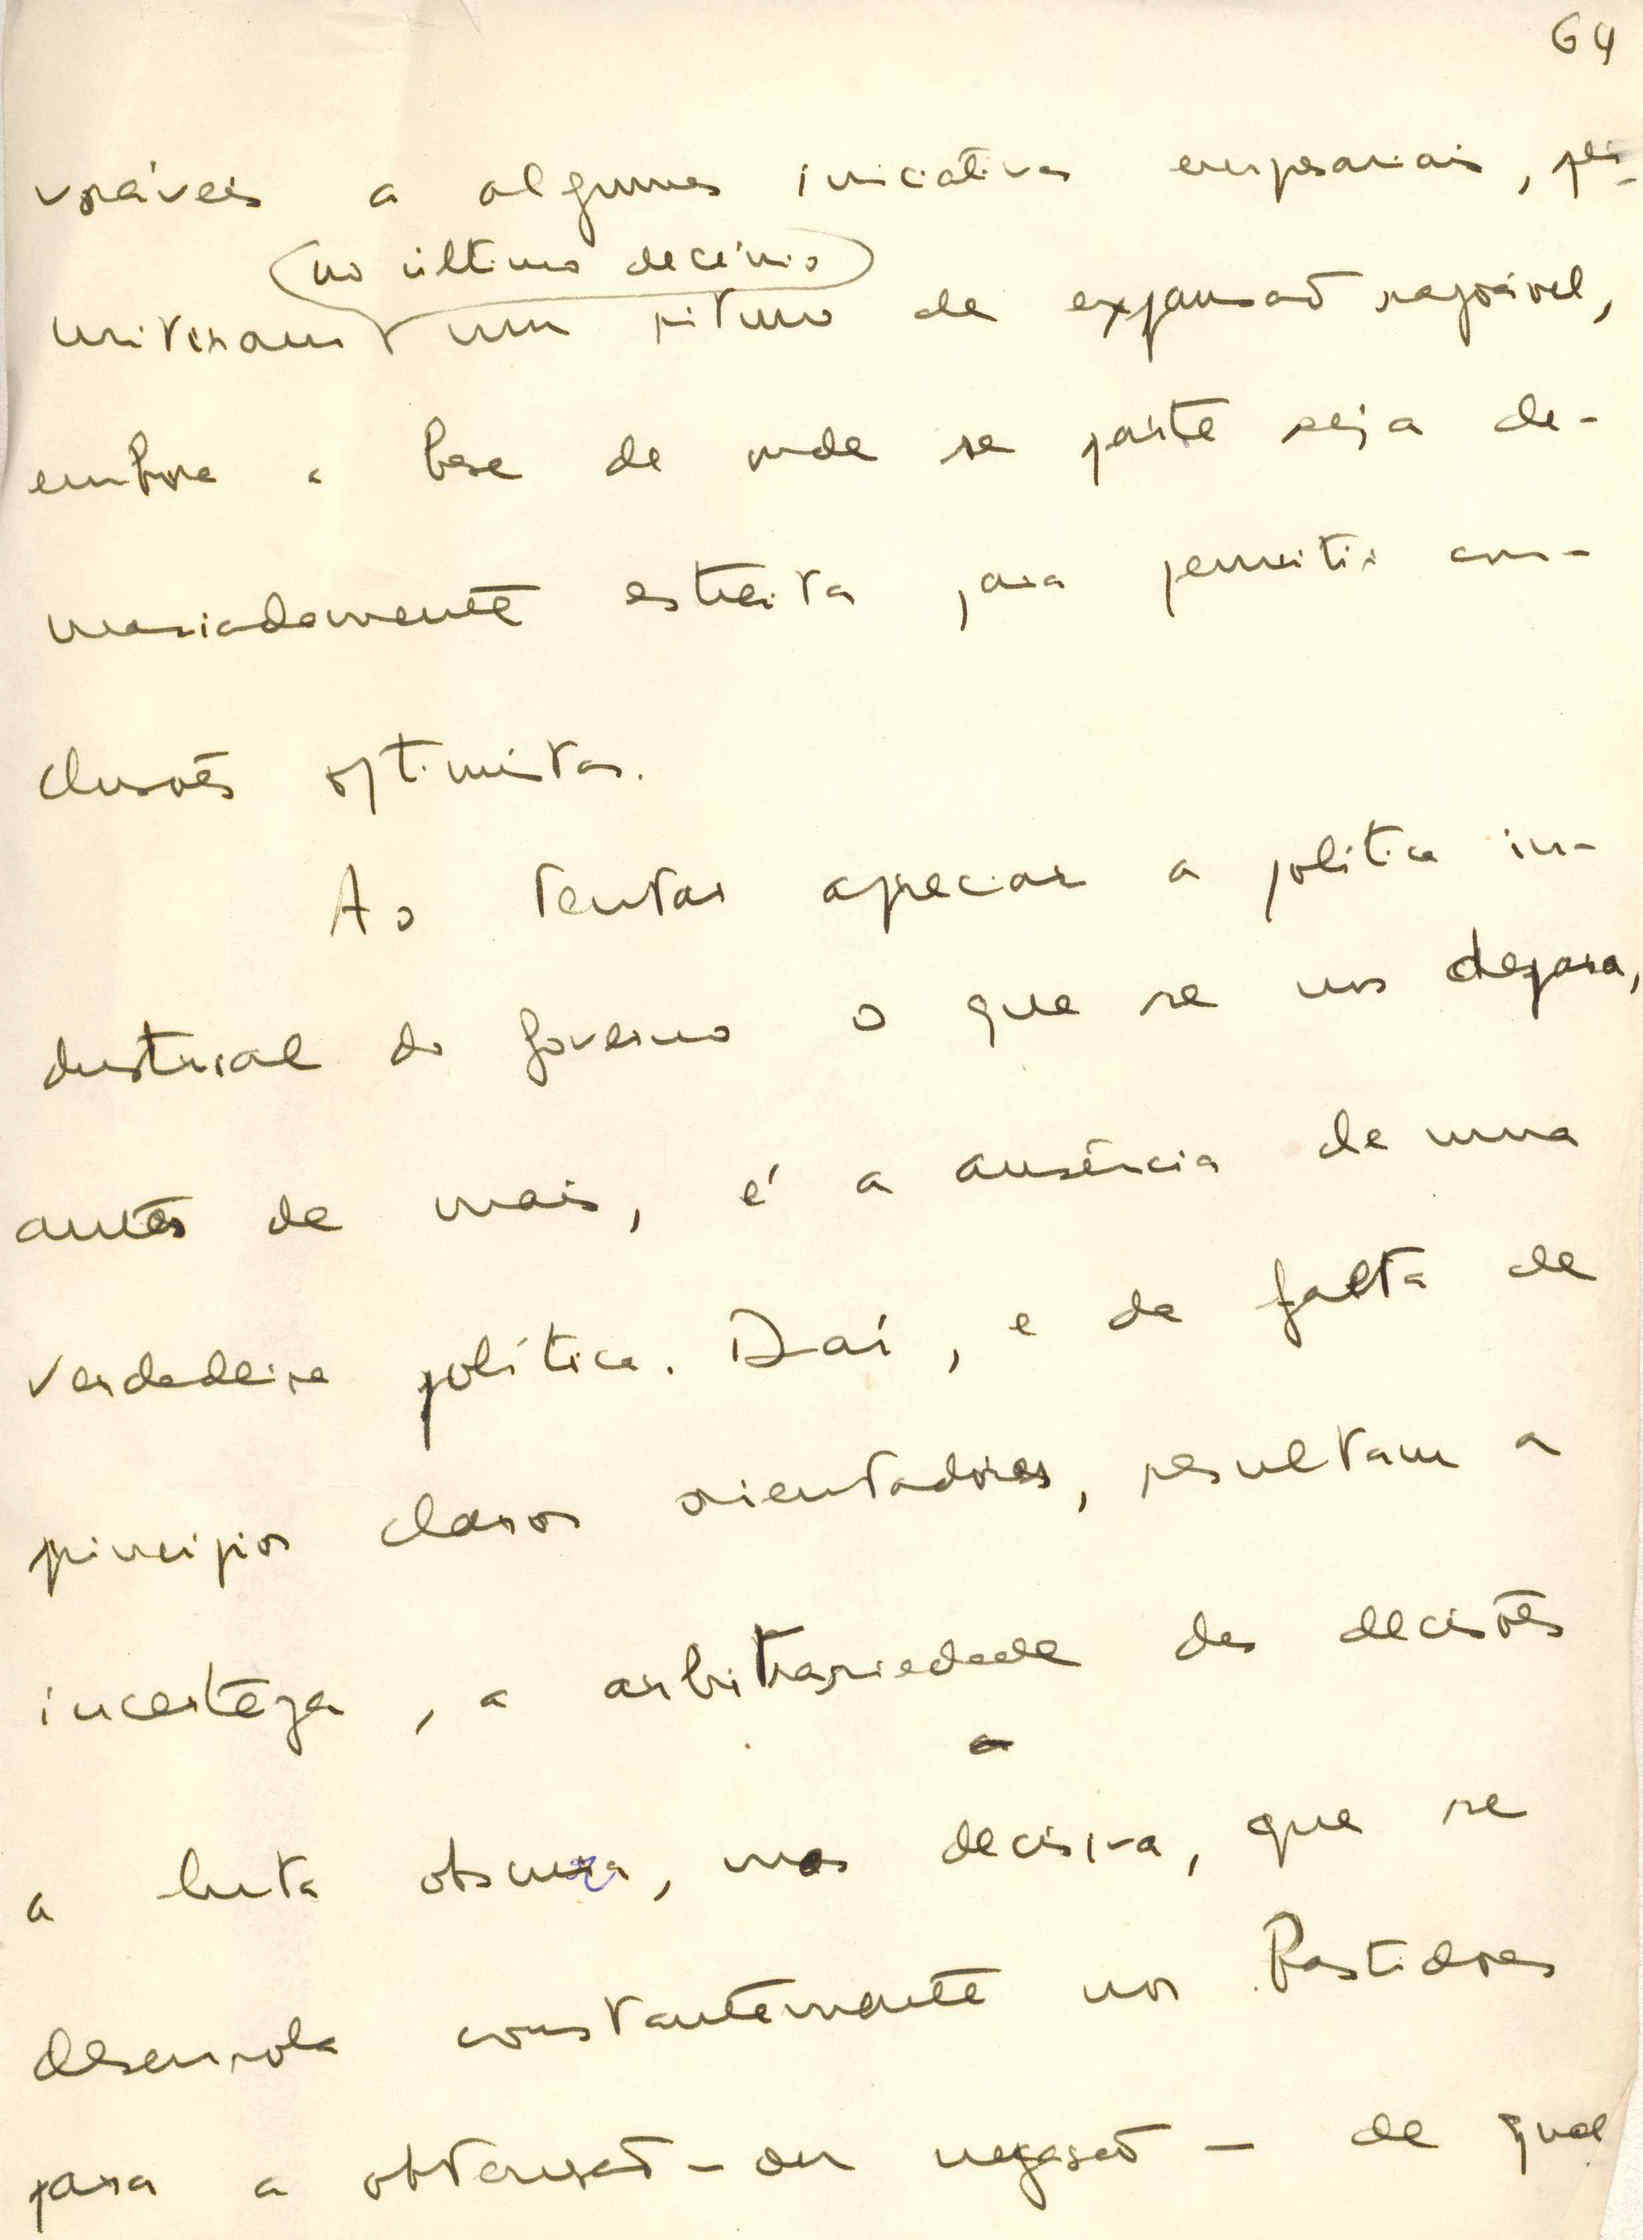 64
voráveis a algumas iniciativas empresariais, per-
no último decénio
mitiram um ritmo de expansão razoável,
embora a base de onde se parte seja de-
masiadamente estreita para permitir con-
clusões optimistas.
Ao tentar apreciar a política in-
dustrial do Governo o que se nos depara,
antes de mais, é a ausência de uma
verdadeira política. Daí, e da falta de
princípios claros orientadores, resultam a
incerteza, a arbitrariedade das decisões
a luta obscura, mas decisiva, que se
desenrola constantemente nos bastidores
para a obtenção - ou negação - de qual